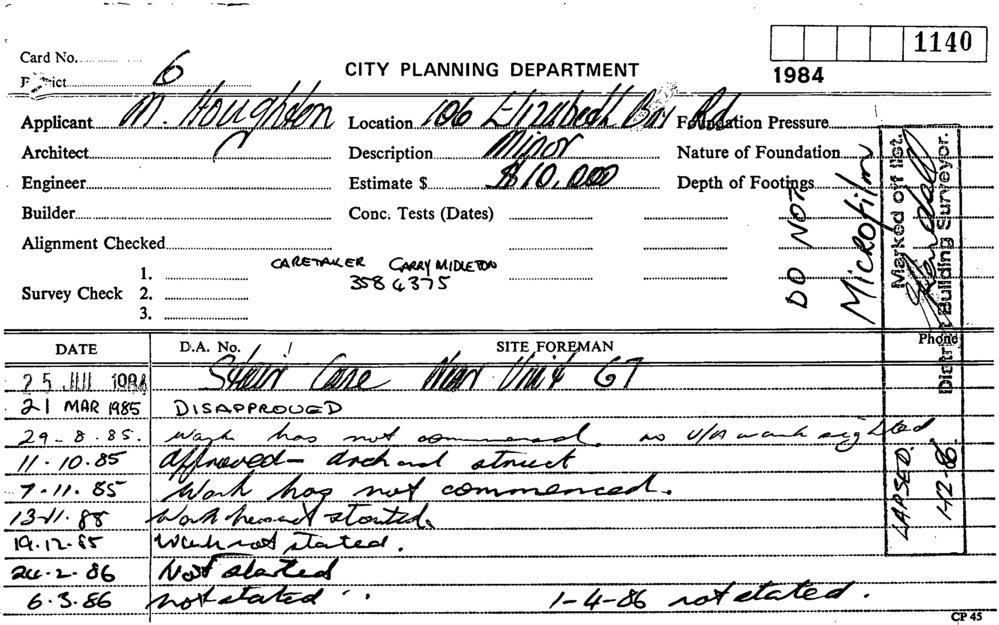 1140
1984
Card No. 6
District
CITY PLANNING DEPARTMENT
Applicant M. Houghton Location 106 Elizabeth Bay Rd Foundation Pressure
Architect Description Minor Nature of Foundation
Engineer Estimate $ $10,000 Depth of Footings
Builder Conc. Tests (Dates)
Alignment Checked
CARETAKER GARRY MIDLETON
358 4375
Survey Check 1.
2.
3.
DO NOT
Microfilm
Marked off list.
District Building Surveyor.
LAPSED.
DATE D.A. No. SITE FOREMAN Phone
25 JUL 1984 Stair Case Near Unit 67
21 MAR 1985 DISAPPROVED
29-8-85. Work has not commenced. no U/A work sighted
11.10.85 approved - arch and struct
7.11.85 Work has not commenced.
13-11-85 Work has not started.
19.12.85 Work not stated.
24.2.86 Not started
6.3.86 not stated 1-4-86 not stated.
CP 45